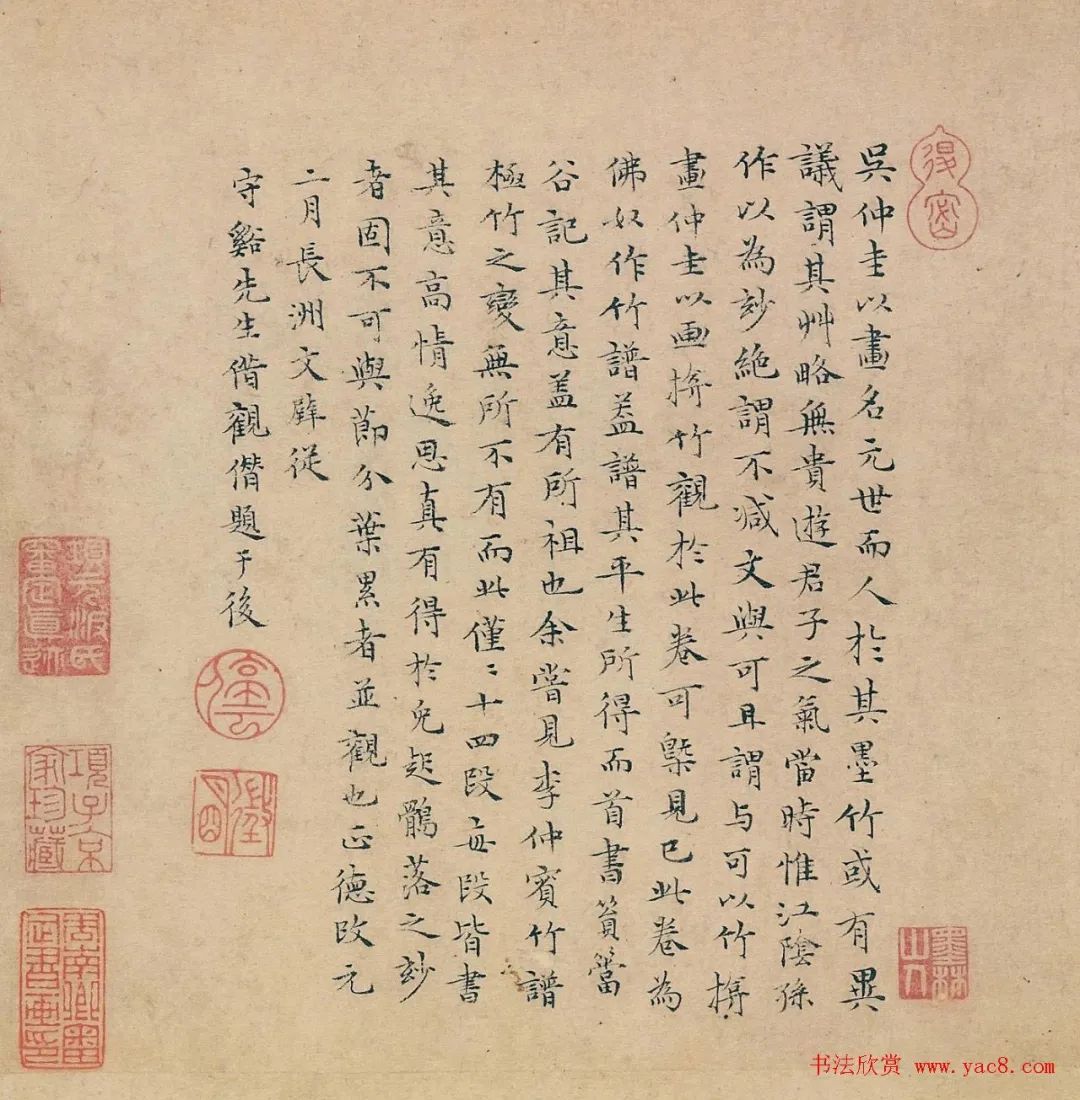 吳仲圭以畫名元世而人於其墨竹或有異
議謂其艸略無貴遊君子之氣當時惟江陰孫
作以為玅絕謂不減文與可且謂与可以竹揜
畫仲圭以画揜竹觀於此卷可槩見已此卷為
佛奴作竹譜葢譜其平生所得而首書篔簹
谷記其意盖有所祖也余嘗見李仲賓竹譜
極竹之變無所不有而此僅〻十四段每段皆書
其意高情逸思真有得於兔起鶻落之玅
者固不可與節分葉累者並觀也正德改元
二月長洲文壁從
守谿先生借觀僭題于後
墨林山人
停雲
徵明
項元汴氏審定真跡
項子京家珍藏
书法欣赏 www.yac8.com